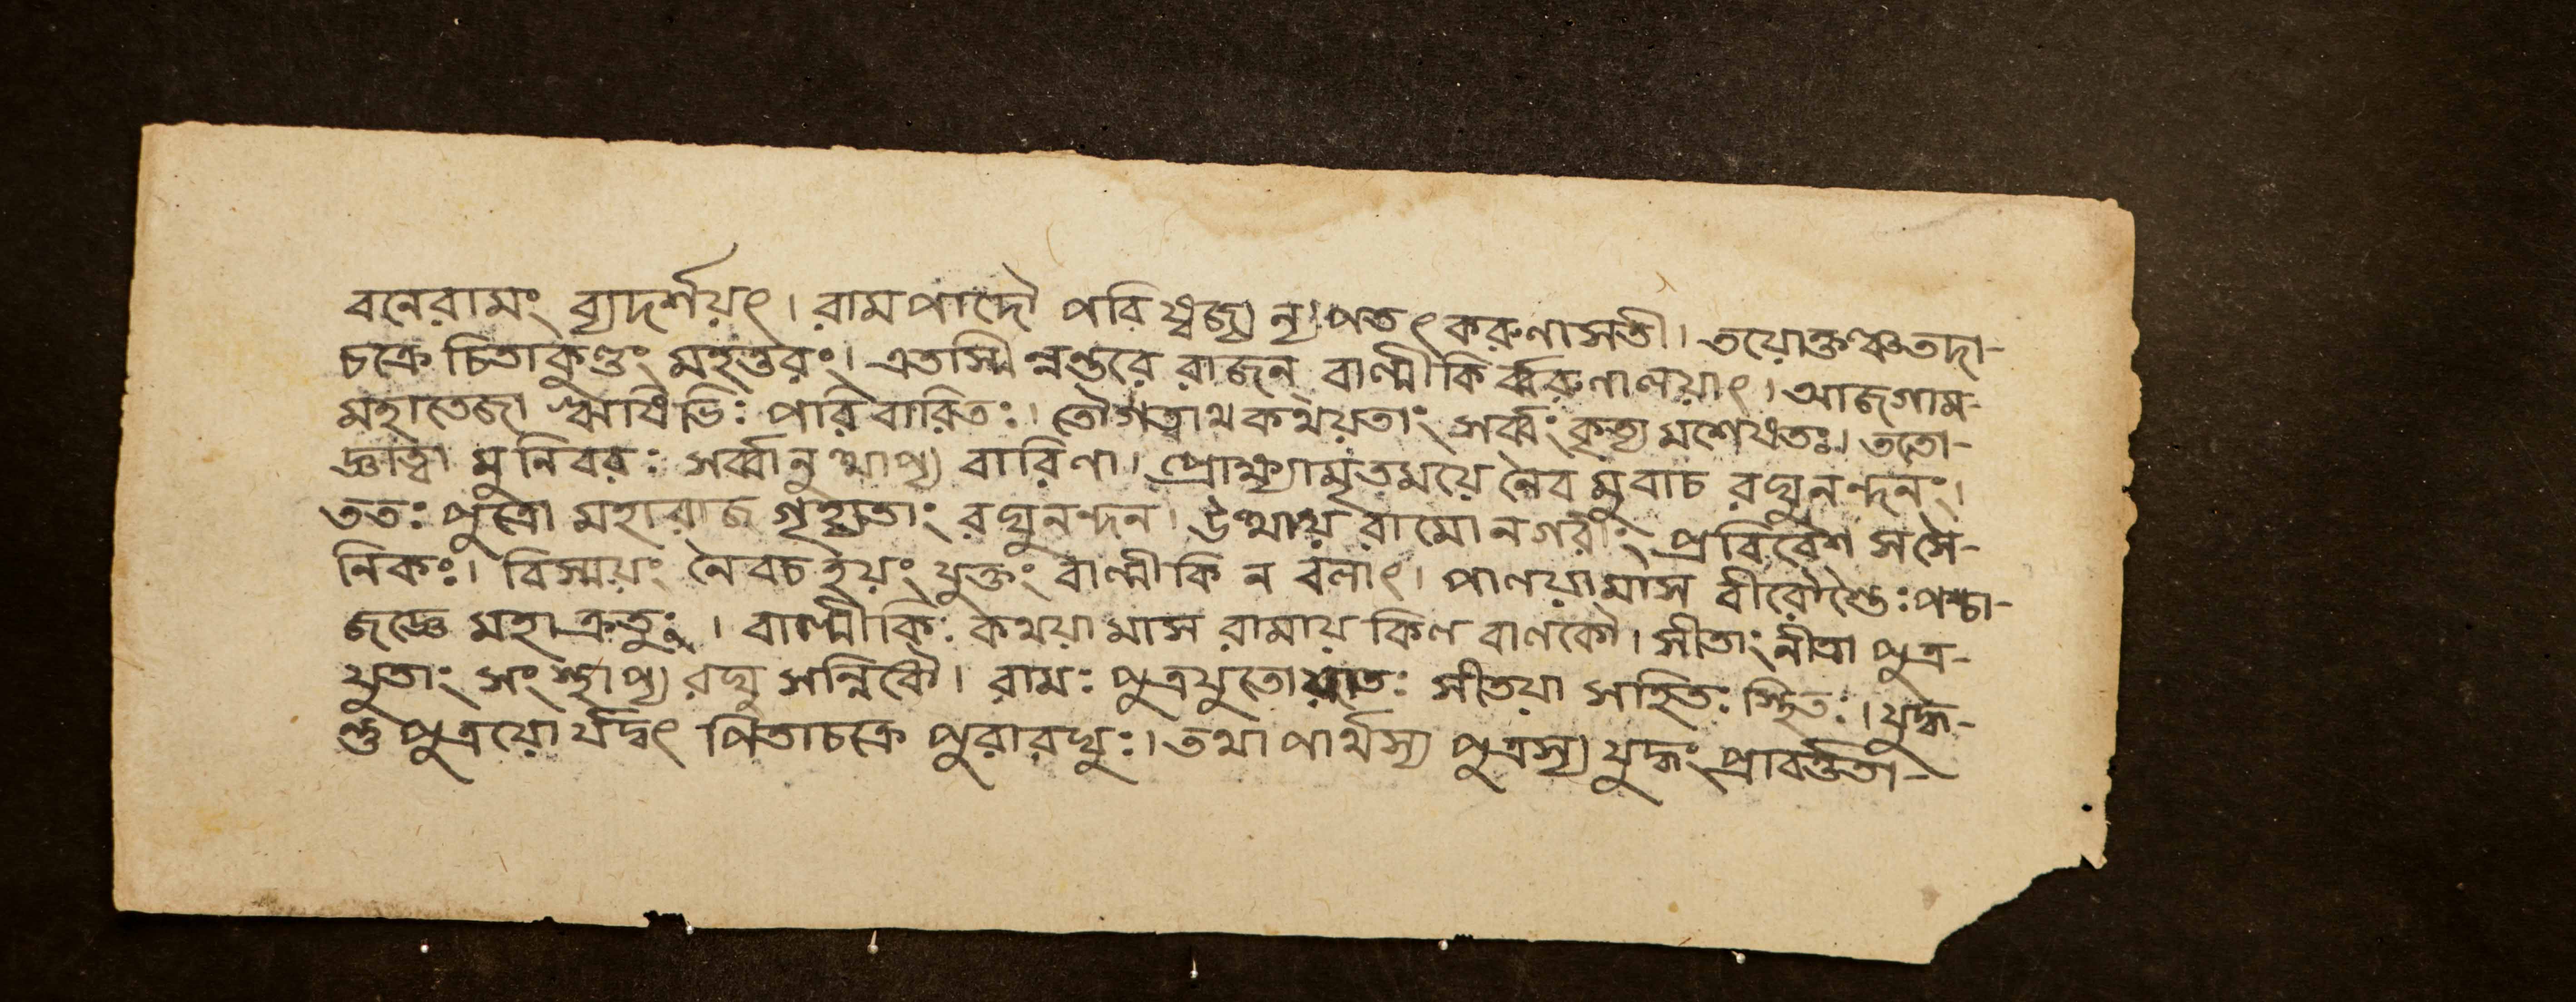 বনেরামং ব্যদর্শয়ৎ। রামপাদৌ পরিষ্বজ্য ন্যপতৎ করুণাসতী। তয়োক্তঞ্চতদা-
চক্রে চিতাকুণ্ডং মহত্তরং। এতস্মিন্নন্তরে রাজন্ বাল্মীকির্ব্বরুণালয়াৎ। আজগাম-
মহাতেজা ঋষিভিঃ পরিবারিতঃ। তৌগত্বাথকথয়তাং সর্ব্বং কৃত্যমশেষতঃ। ততো-
জ্ঞাত্বা মুনিবরঃ সর্ব্বানুত্থাপ্য বারিণা। প্রোক্ষ্যামৃতময়ে নৈব মুবাচ রঘুনন্দনং।
ততঃ পুত্রৌ মহারাজ গৃহ্যতাং রঘুনন্দন। উত্থায় রামো নগরীং প্রবিবেশ সসৈ-
নিকঃ। বিস্ময়ং নৈবচ হয়ং যুক্তং বাল্মীকি ন বলাৎ। পালয়ামাস বীরৌ পশ্চা-
জজ্ঞে মহাক্রতুং। বাল্মীকিঃ কথয়ামাস রামায় কিল বালকৌ। সীতাং নীত্বা পুত্র-
যুতাং সংস্থাপ্য রঘু সন্নিধৌ। রামঃ পুত্রযুতো যাতঃ সীতয়া সহিতঃ স্থিতঃ। যুদ্ধ-
ন্তু পুত্রয়ো র্যদ্বৎ পিতাচক্রে পুরারঘুঃ। তথা পার্থস্য পুত্রস্য যুদ্ধং প্রাবর্ত্ততা-